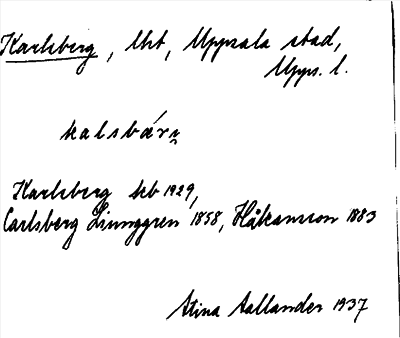 Karlsberg, lht, Uppsala stad,
Upps. l.
kalsbárj
Karlsberg kb 1929,
Carlsberg Ljunggren 1858, Håkansson 1883
Stina Aallander 1937